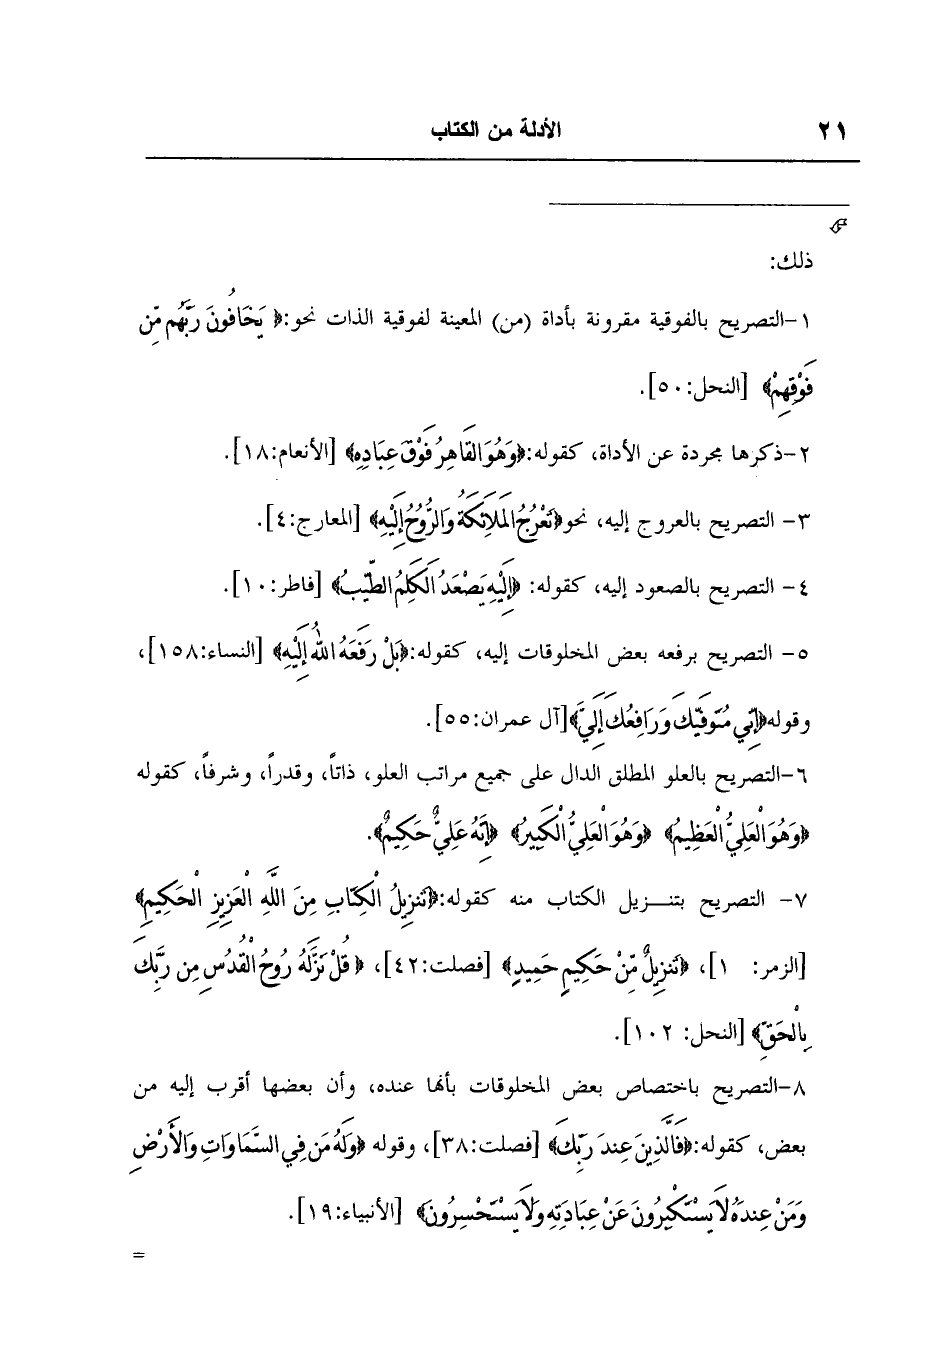 ٢١ الأدلة من الكتاب
ذلك:
١-التصريح بالفوقية مقرونة بأداة (من) المعينة لفوقية الذات نحو:﴿ يَخَافُونَ رَبَّهُم مِّن
فَوْقِهِمْ﴾ [النحل:٥٠].
٢-ذكرها مجردة عن الأداة، كقوله:﴿وَهُوَ القَاهِرُ فَوْقَ عِبَادِهِ﴾ [الأنعام:١٨].
٣- التصريح بالعروج إليه، نحو﴿تَعْرُجُ المَلَائِكَةُ وَالرُّوحُ إِلَيْهِ﴾ [المعارج:٤].
٤- التصريح بالصعود إليه، كقوله: ﴿إِلَيْهِ يَصْعَدُ الكَلِمُ الطَّيِّبُ﴾ [فاطر:١٠].
٥- التصريح برفعه بعض المخلوقات إليه، كقوله:﴿بَلْ رَفَعَهُ اللهُ إِلَيْهِ﴾ [النساء:١٥٨]،
وقوله﴿إِنِّي مُتَوَفِّيكَ وَرَافِعُكَ إِلَيَّ﴾[آل عمران:٥٥].
٦-التصريح بالعلو المطلق الدال على جميع مراتب العلو، ذاتاً، وقدراً، وشرفاً، كقوله
﴿وَهُوَ الْعَلِيُّ الْعَظِيمُ﴾ ﴿وَهُوَ الْعَلِيُّ الْكَبِيرُ﴾ ﴿إِنَّهُ عَلِيٌّ حَكِيمٌ﴾.
٧- التصريح بتنـزيل الكتاب منه كقوله:﴿تَنزِيلُ الْكِتَابِ مِنَ اللَّهِ الْعَزِيزِ الْحَكِيمِ﴾
[الزمر: ١]، ﴿تَنزِيلٌ مِّنْ حَكِيمٍ حَمِيدٍ﴾ [فصلت:٤٢]، ﴿ قُلْ نَزَّلَهُ رُوحُ الْقُدُسِ مِن رَّبِّكَ
بِالْحَقِّ﴾ [النحل: ١٠٢].
٨-التصريح باختصاص بعض المخلوقات بأنها عنده، وأن بعضها أقرب إليه من
بعض، كقوله:﴿فَالَّذِينَ عِندَ رَبِّكَ﴾ [فصلت:٣٨]، وقوله ﴿وَلَهُ مَن فِي السَّمَاوَاتِ وَالأَرْضِ
وَمَنْ عِندَهُ لَا يَسْتَكْبِرُونَ عَنْ عِبَادَتِهِ وَلَا يَسْتَحْسِرُونَ﴾ [الأنبياء:١٩].
=